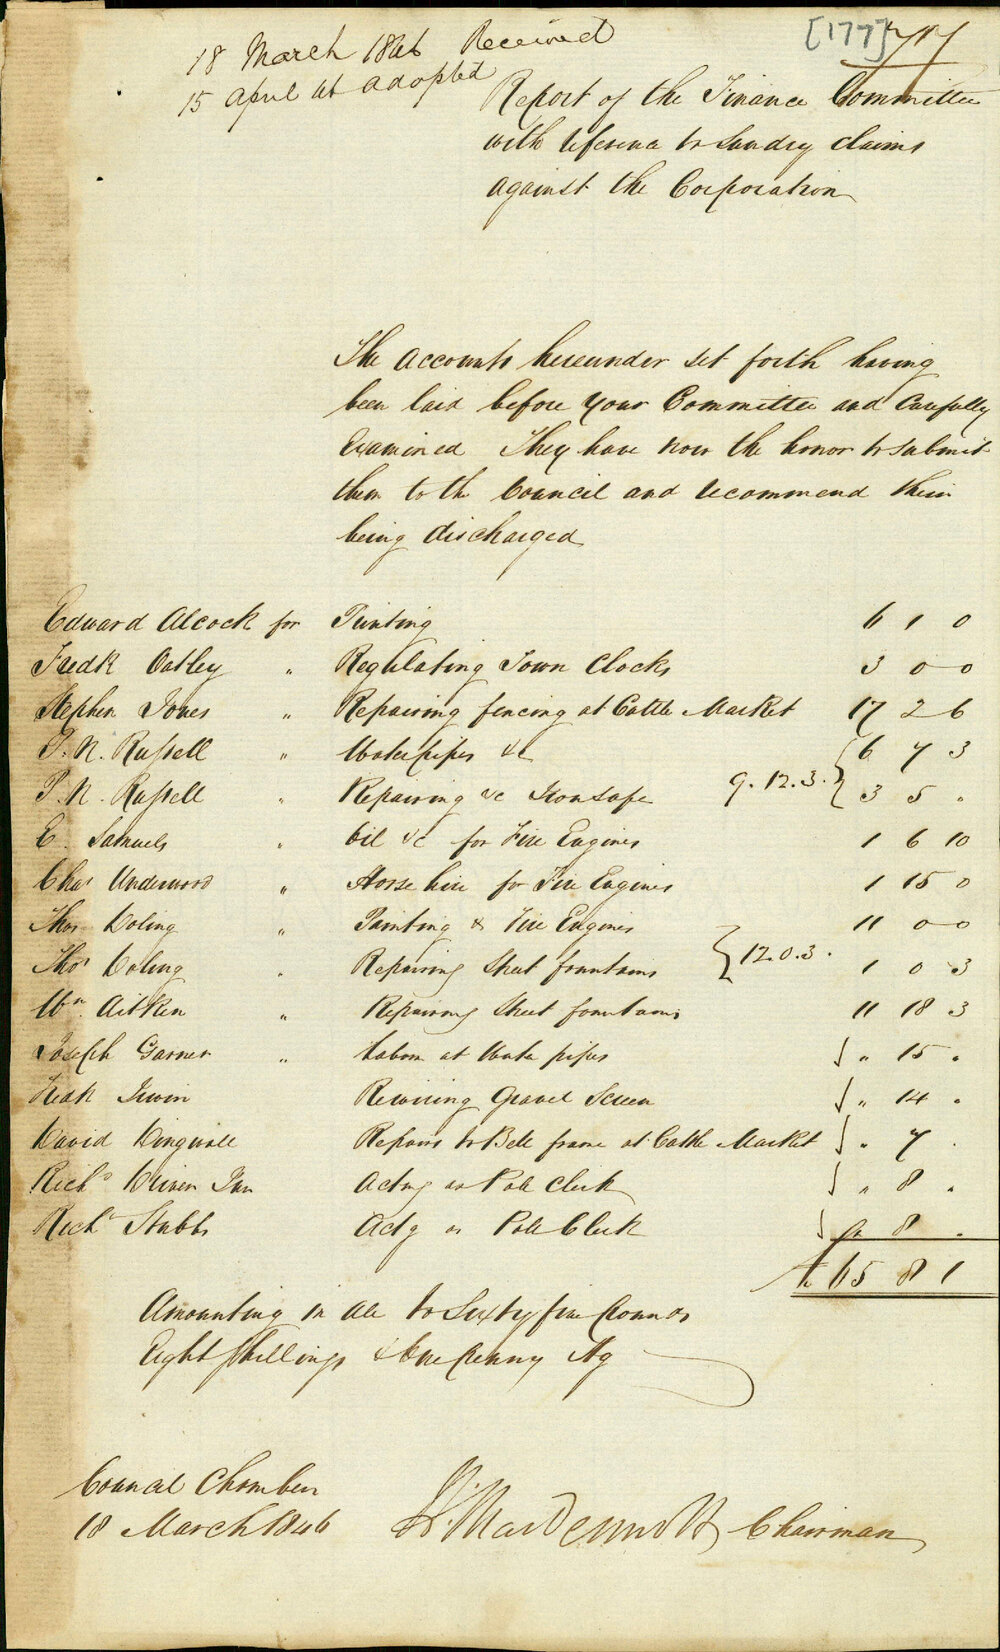 [177]
18 March 1846 Received
15 April 46 adopted
Report of the Finance Committee
with reference to Sundry claims
against the Corporation
The Accounts hereunder set forth having
been laid before your Committee and Carefully
Examined They have now the honor to submit
them to the Council and recommend their
being discharged
Edward Alcock for Printing 6 1 0
Fredk Oatley " Regulating Town Clocks 3 0 0
Stephen Jones " Repairing fencing at Cattle Market 17 2 6
P. N. Russell " Water pipes &c 6 7 3
P. N. Russell " Repairing &c Iron Safe 9.12.3. 3 5 "
E. Samuels " Oil &c for Fire Engines 1 6 10
Chas Underwood " Horse hire for Fire Engines 1 15 0
Thos Doling " Painting & Fire Engines 11 0 0
Thos Doling " Repairing Street fountains 12.0.3. 1 0 3
Wm. Aitken " Repairing Street fountains 11 18 3
Joseph Garner " Labor at Water pipes " 15 "
Fredk Irwin Rewiring Gravel Screen " 14 "
David Dingwall Repairs to Bell frame at Cattle Market " 7 "
Richd Driver Jun Acting as Poll Clerk " 8 "
Richd Stubbs Actg as Poll Clerk " 8 "
£ 65 8 1
Amounting in all to Sixty five Pounds
Eight Shillings & One Penny Stg
Council Chamber
18 March 1846 H. MacDermott Chairman